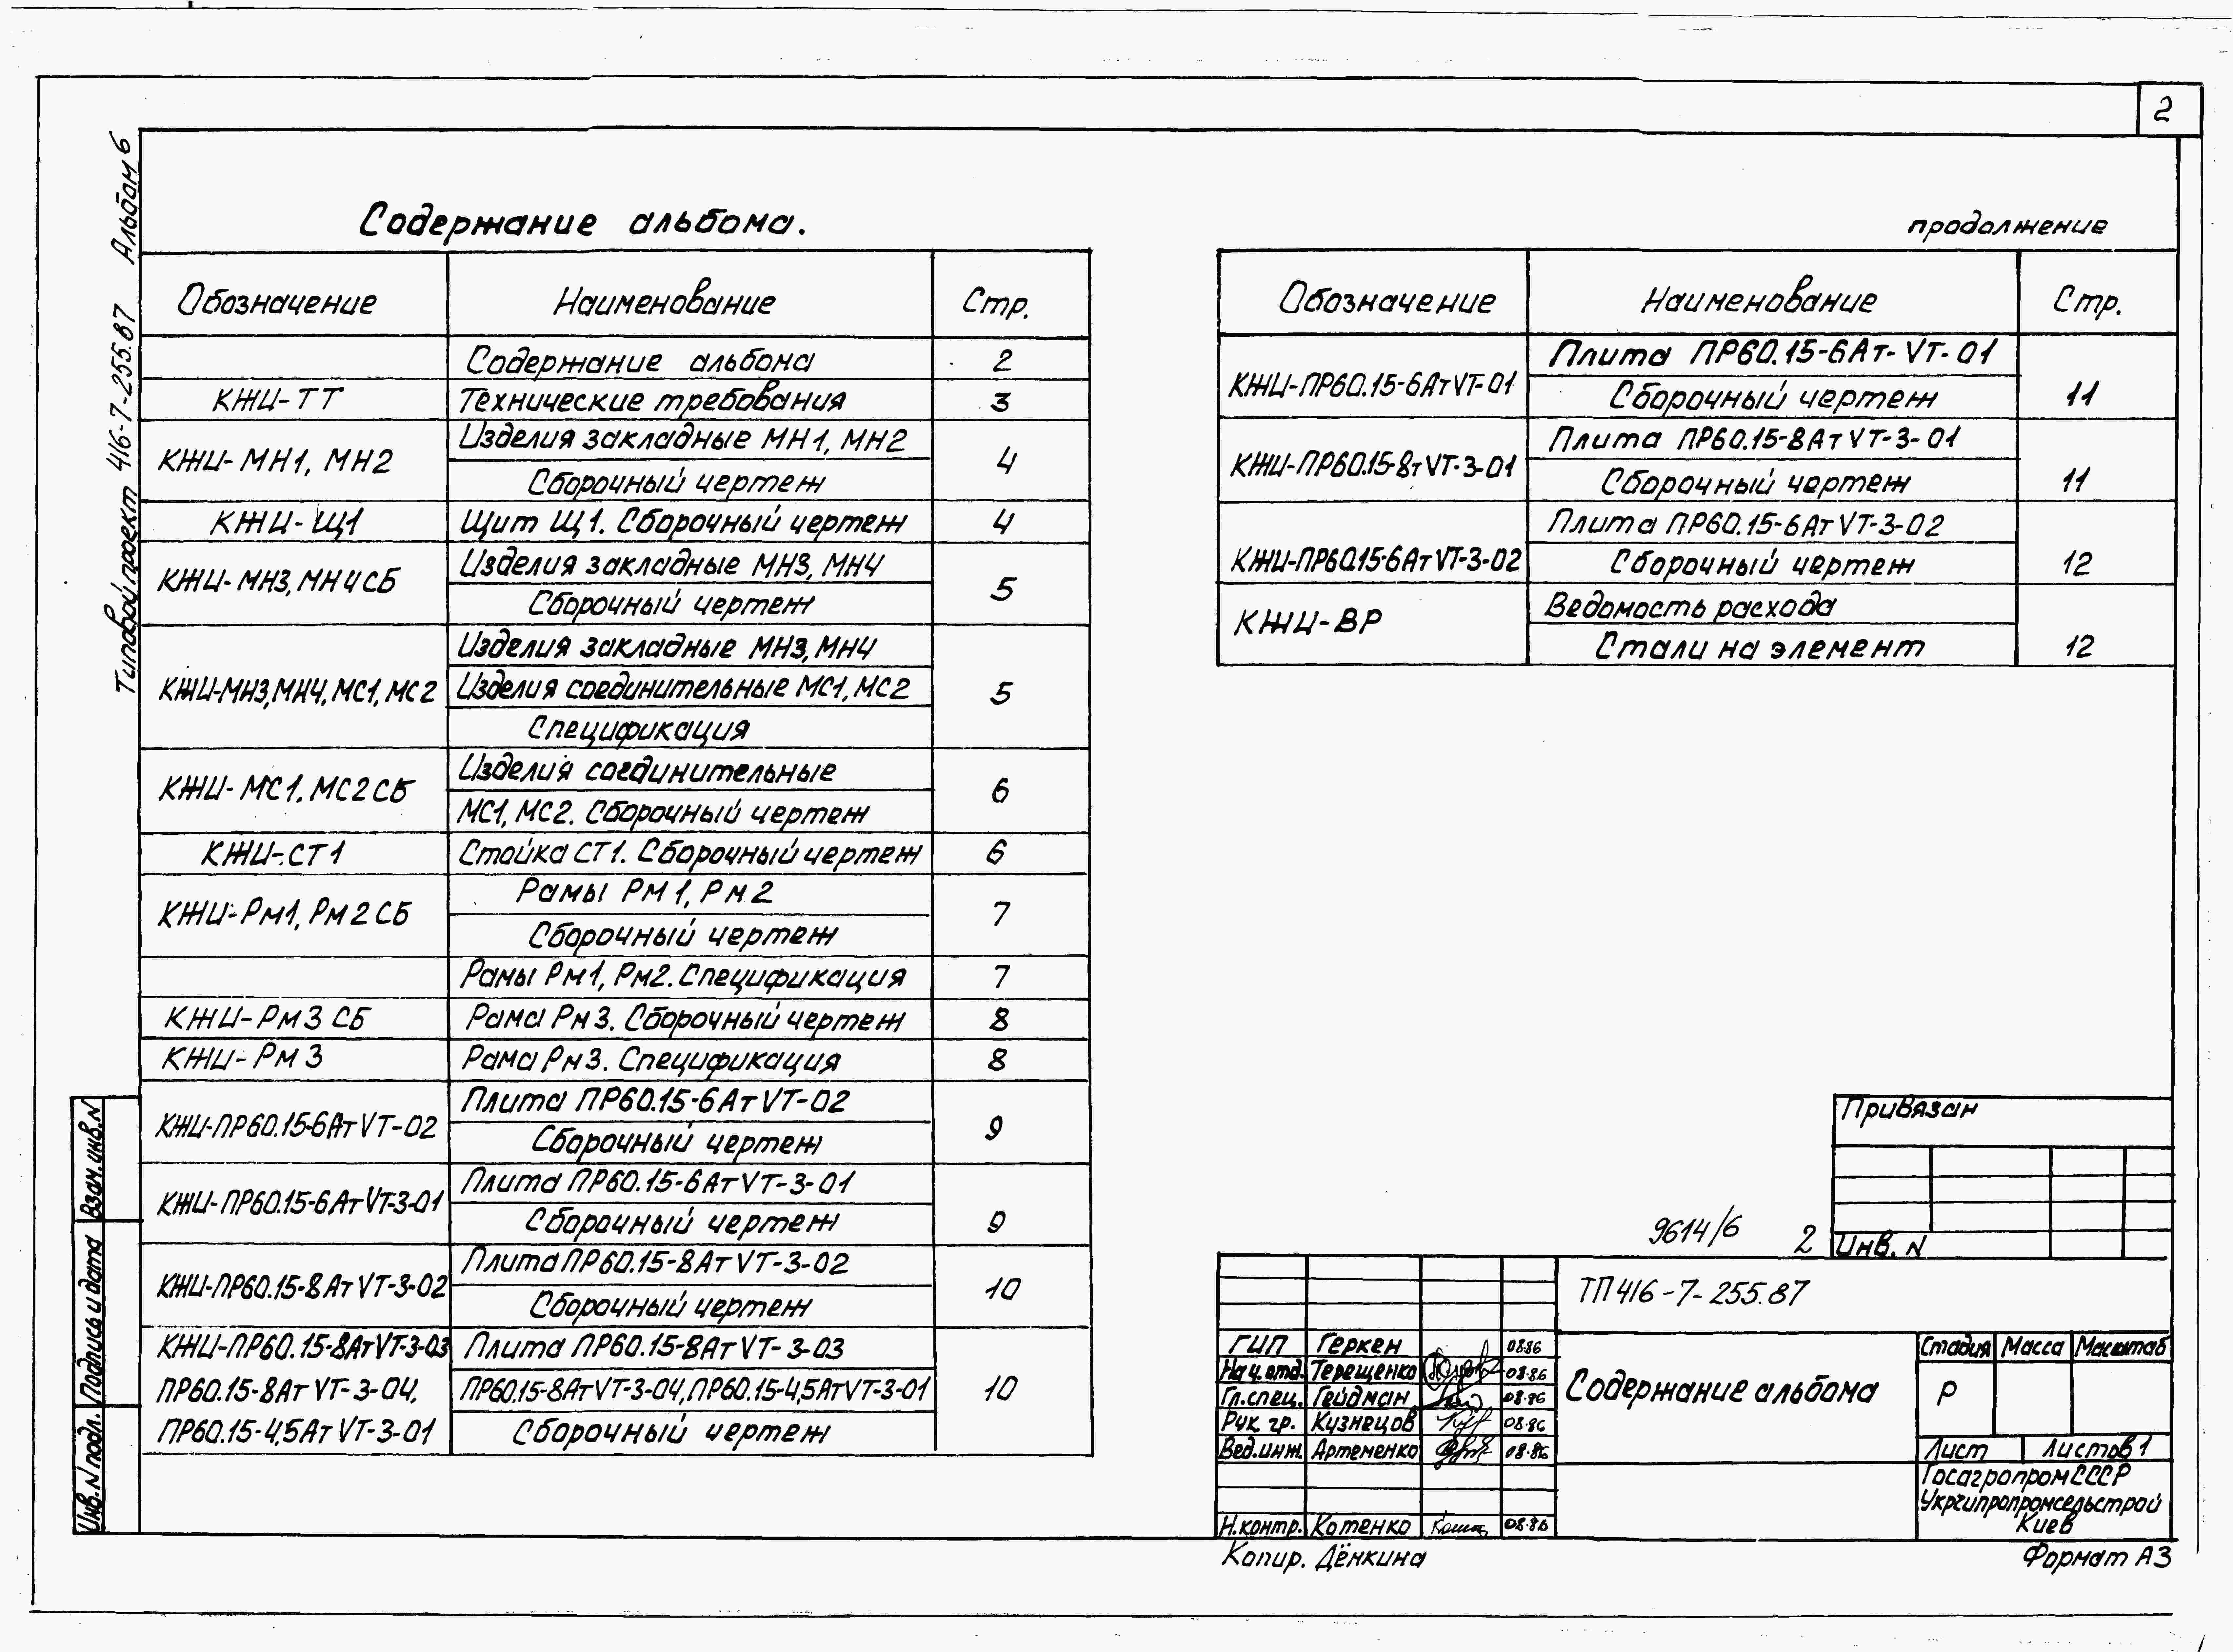 2
Типовой проект 416-7-255.87 Альбом 6
Содержание альбома.
Обозначение Наименование Стр.
Содержание альбома 2
КЖИ-ТТ Технические требования 3
КЖИ-МН1, МН2 Изделия закладные МН1, МН2
Сборочный чертеж 4
КЖИ-Щ1 Щит Щ1. Сборочный чертеж 4
КЖИ-МН3, МН4СБ Изделия закладные МН3, МН4
Сборочный чертеж 5
Изделия закладные МН3, МН4
КЖИ-МН3, МН4, МС1, МС2 Изделия соединительные МС1, МС2 5
Спецификация
КЖИ-МС1. МС2СБ Изделия соединительные
МС1, МС2. Сборочный чертеж 6
КЖИ-СТ1 Стойка СТ1. Сборочный чертеж 6
КЖИ-Рм1, Рм2 СБ Рамы Рм1, Рм2
Сборочный чертеж 7
Рамы Рм1, Рм2. Спецификация 7
КЖИ-Рм3 СБ Рама Рм3. Сборочный чертеж 8
КЖИ-Рм3 Рама Рм3. Спецификация 8
КЖИ-ПР60.15-6АтVТ-02 Плита ПР60.15-6АтVТ-02
Сборочный чертеж 9
КЖИ-ПР60.15-6АтVТ-3-01 Плита ПР60.15-6АтVТ-3-01
Сборочный чертеж 9
КЖИ-ПР60.15-8АтVТ-3-02 Плита ПР60.15-8АтVТ-3-02
Сборочный чертеж 10
КЖИ-ПР60.15-8АтVТ-3-03 Плита ПР60.15-8АтVТ-3-03
ПР60.15-8АтVТ-3-04, ПР60.15-8АтVТ-3-04, ПР60.15-4,5АтVТ-3-01 10
ПР60.15-4,5АтVТ-3-01 Сборочный чертеж
продолжение
Обозначение Наименование Стр.
КЖИ-ПР60.15-6АтVТ-01 Плита ПР60.15-6Ат-VТ-01
Сборочный чертеж 11
КЖИ-ПР60.15-8тVТ-3-01 Плита ПР60.15-8АтVТ-3-01
Сборочный чертеж 11
Плита ПР60.15-6АтVТ-3-02
КЖИ-ПР60.15-6АтVТ-3-02 Сборочный чертеж 12
КЖИ-ВР Ведомость расхода
Стали на элемент 12
Привязан
Инв. N
9614/6 2
ТП 416-7-255.87
ГИП Геркен 08.86
Нач.отд. Терещенко 08.86
Гл.спец. Гейдман 08.86
Рук. гр. Кузнецов 08.86
Вед.инж. Артеменко 08.86
Н.контр. Котенко 08.86
Содержание альбома
Стадия Масса Масштаб
Р
Лист Листов 1
Госагропром СССР
Укргипропромсельстрой
Киев
Копир. Дёнкина
Формат А3
Взам.инв.N
Подпись и дата
Инв. N подл.